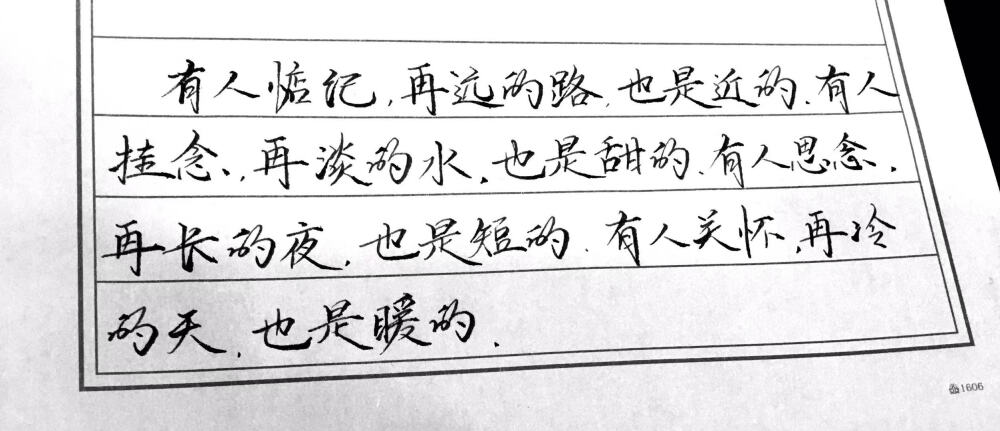 有人惦记,再远的路,也是近的.有人
挂念,再淡的水,也是甜的.有人思念,
再长的夜,也是短的.有人关怀,再冷
的天,也是暖的.
1606